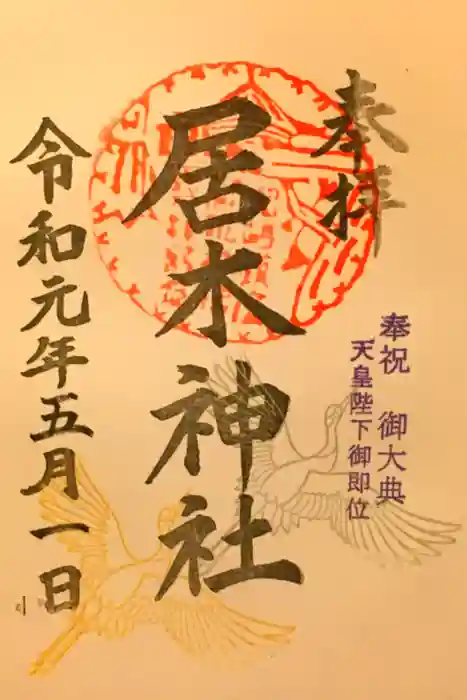 奉拝
奉祝 御大典
天皇陛下御即位
居木神社
令和元年五月一日